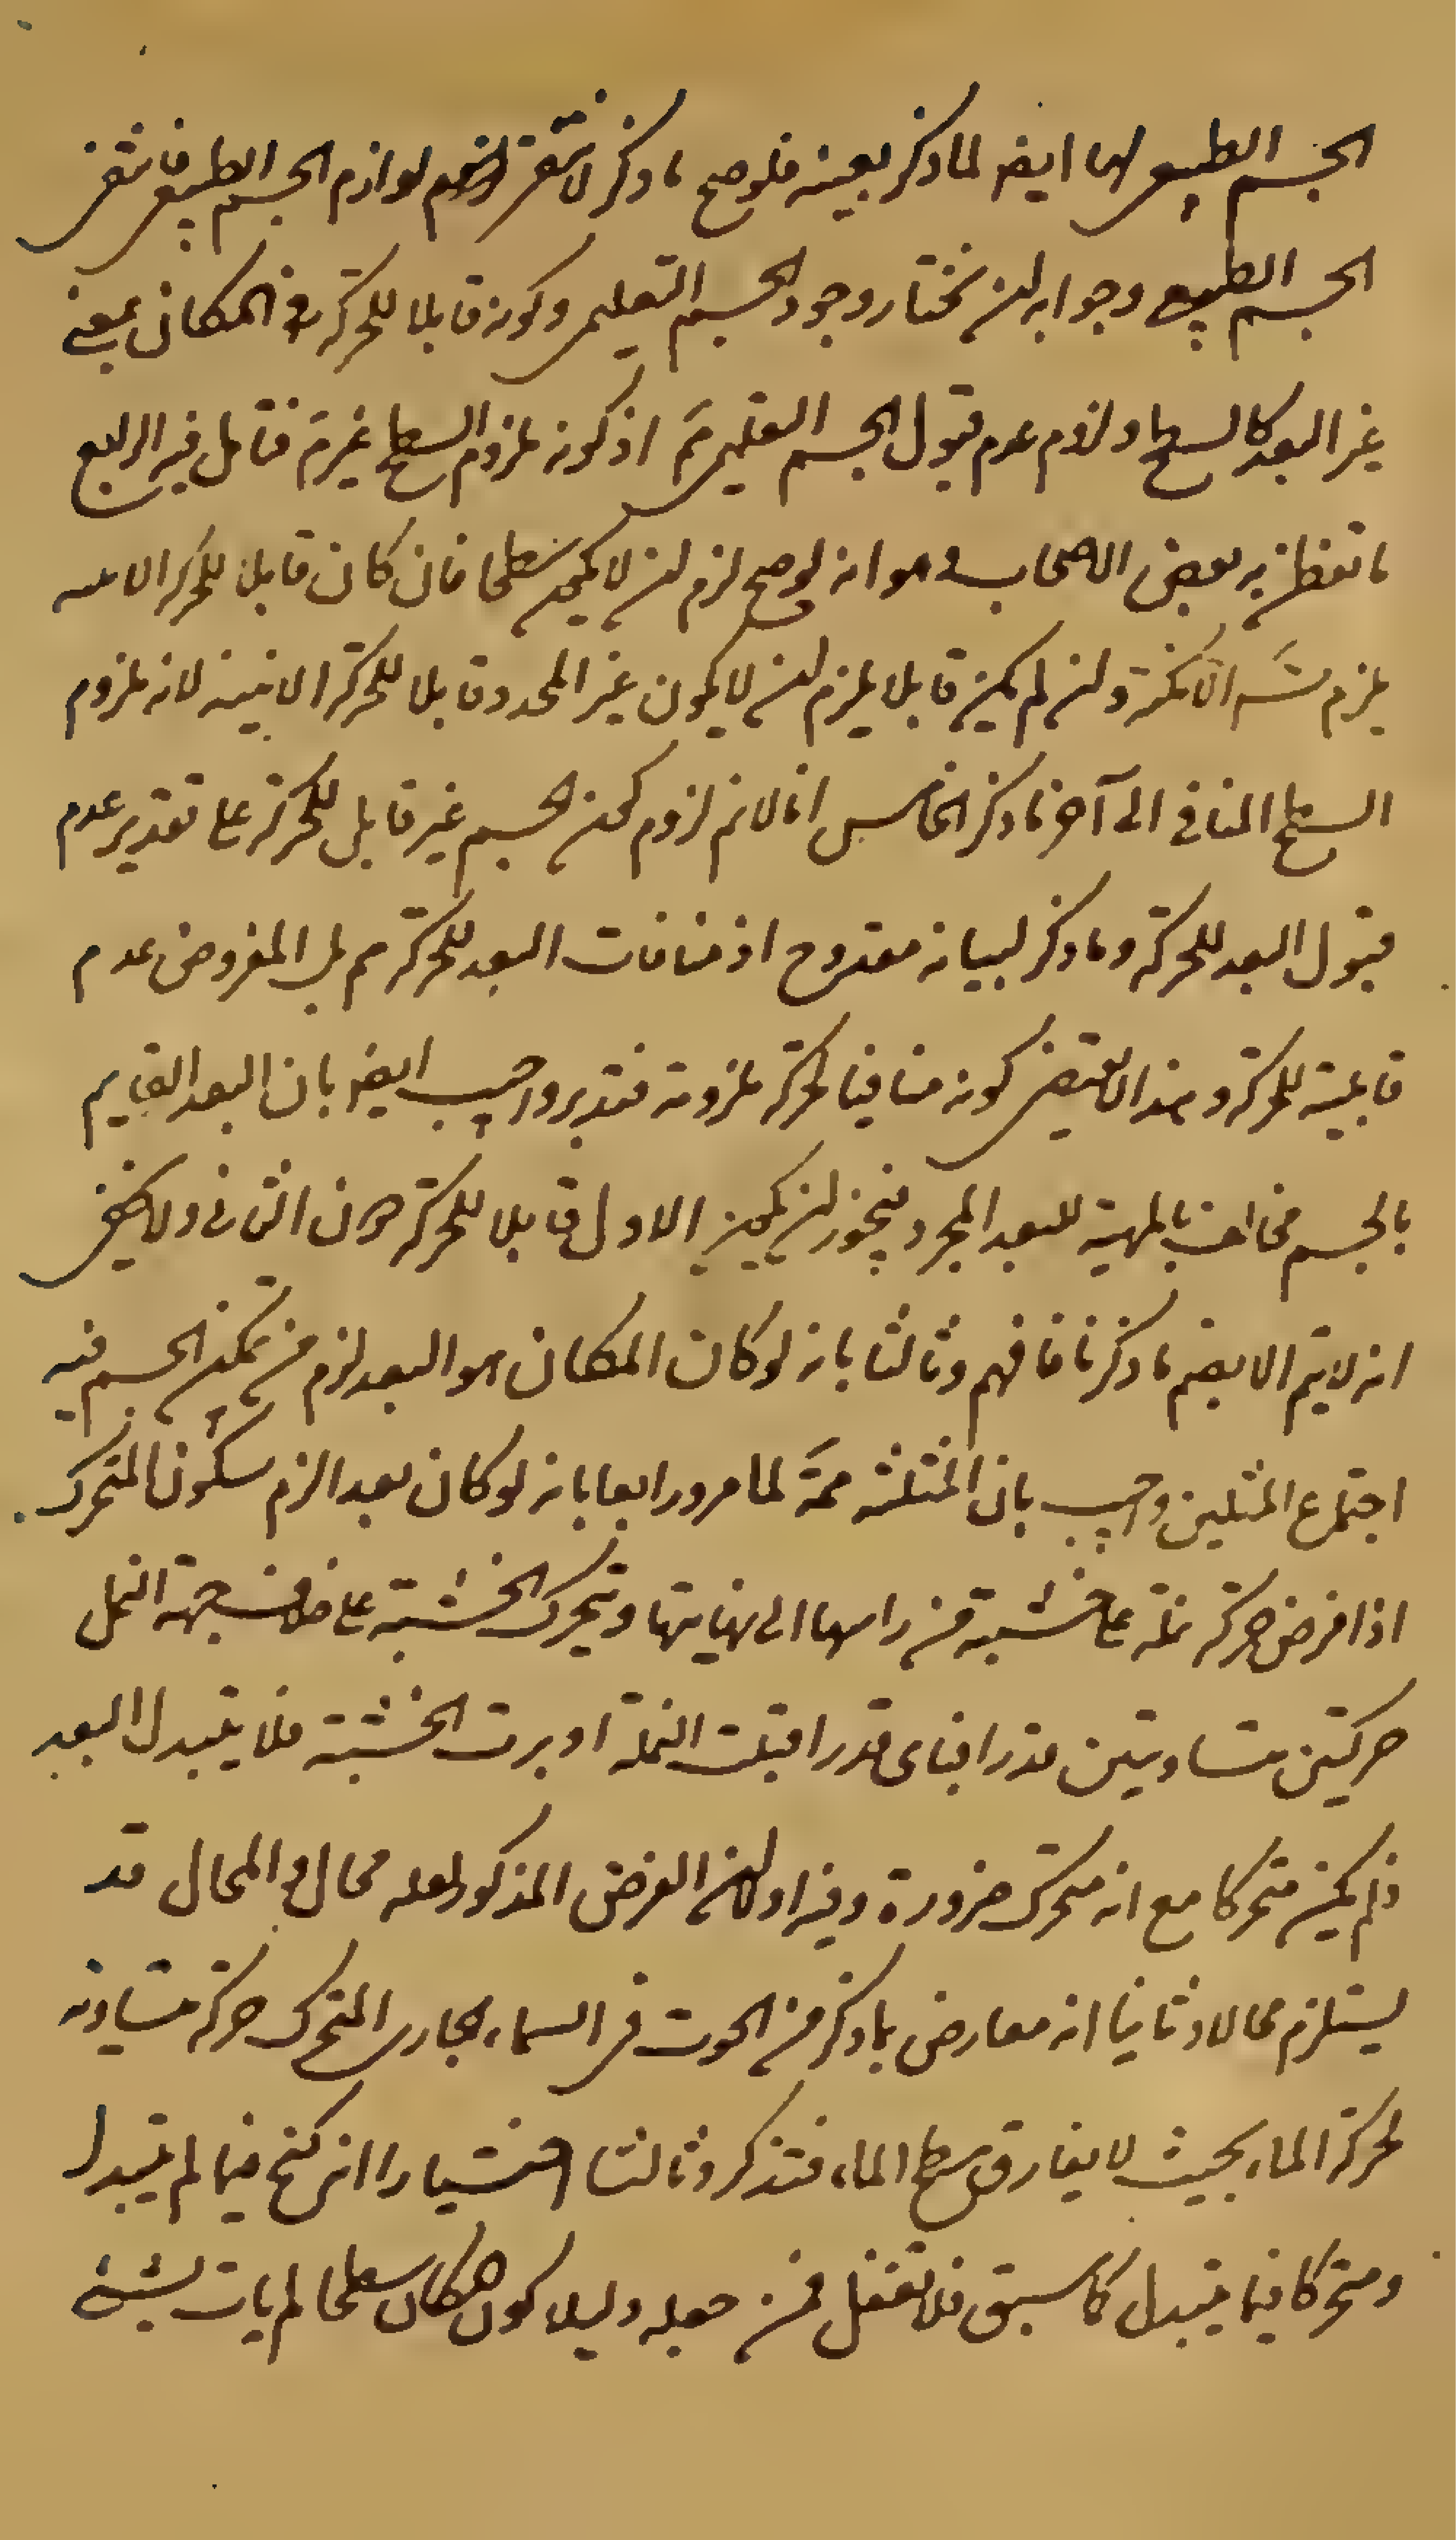 الجسم الطبيعي لها ايضا لما ذكر بعينه فلو صح ما ذكر لانتفى لوازم الجسم الطبيعي فانتفى
الجسم الطبيعي وجوابه ان نختار وجود الجسم التعليمي وكونه قابلا للحركة في المكان بمعنى
غير البعد كالسطح ولزوم عدم قبول الجسم التعليمي ثم اذ كونه ملزوم السطح غير تم فتأمل فيه الرابع
ما تفطن به بعض الاصحاب وهو انه لو صح لزم ان لا يكون سطحا فان كان قابلا للحركة الاينية
يلزم تس الامكنة وان لم يكن قابلا يلزم ان لا يكون غير المحدد قابلا للحركة الاينية لانه ملزوم
السطح المنافي الى آخر ما ذكر الخامس انا لانم لزوم كون الجسم غير قابل للحركة على تقدير عدم
قبول البعد للحركة وما ذكر لبيانه مقدوح اذ منافات البعد للحركة مم بل المفروض عدم
قابلية للحركة وهذا لا يقتضي كونه منافيا لحركة ملزومه فتدبر واجيب ايضا بان البعد القايم
بالجسم مخالف بالمهية للبعد المجرد فيجوز ان يكون الاول قابلا للحركة دون الثاني ولا يخفى
انه لا يتم الا بضم ما ذكرنا فافهم وثالثا بانه لو كان المكان هو البعد لزم من تمكن الجسم فيه
اجتماع المثلين واجيب بان المثلثه ممة لما مر ورابعا بانه لو كان بعدا لزم سكون المتحرك
اذا فرض حركة نملة على خشبة من راسها الى نهايتها وتتحرك الخشبة على خلاف جهة النمل
حركتين متساويتين قدرا فباى قدر اقبلت النملة ادبرت الخشبة فلا يتبدل البعد
فلم يكن متحركا مع انه متحرك ضرورة وفيه اولا ان الفرض المذكور لعله محال والمحال قد
يستلزم محالا وثانيا انه معارض بما ذكر من الحوت في السماء الجارى المتحرك حركة متساوية
لحركة الماء بحيث لا يفارق سطح الماء فتذكر وثالثا اختيار انه ساكن فيما لم يتبدل
ومتحركا فيما يتبدل كما سبق فلا تغفل فمن جعله دليلا كون المكان سطحا لم يات بشئ